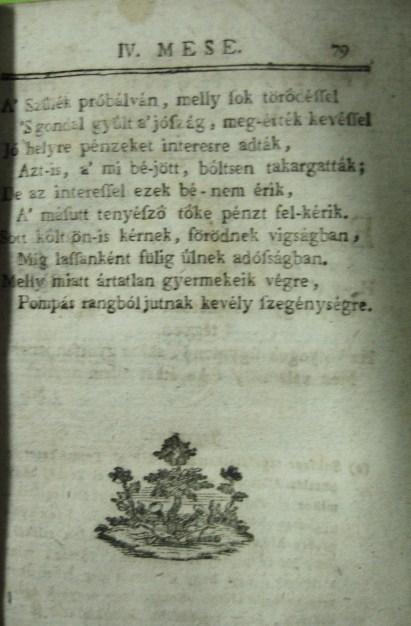 IV. MESE. 79
A' Szülék próbálván, melly ſok törőcéſſel
'S gonddal gyűlt a' jóſzág, meg-érték kevéſſel
Jó helyre pénzeket intereſre adták,
Azt-is, a' mi bé-jött, bőltsen takargatták;
De az intereſſel ezek bé-nem érik,
A' máſutt tenyéſző tőke pénzt fel-kérik.
Sőtt költſön-is kérnek, förödnek vigságban,
Mig laſſanként fülig ülnek adóſságban.
Melly miatt ártatlan gyermekeik végre,
Pompás rangból jutnak kevély ſzegénységre.